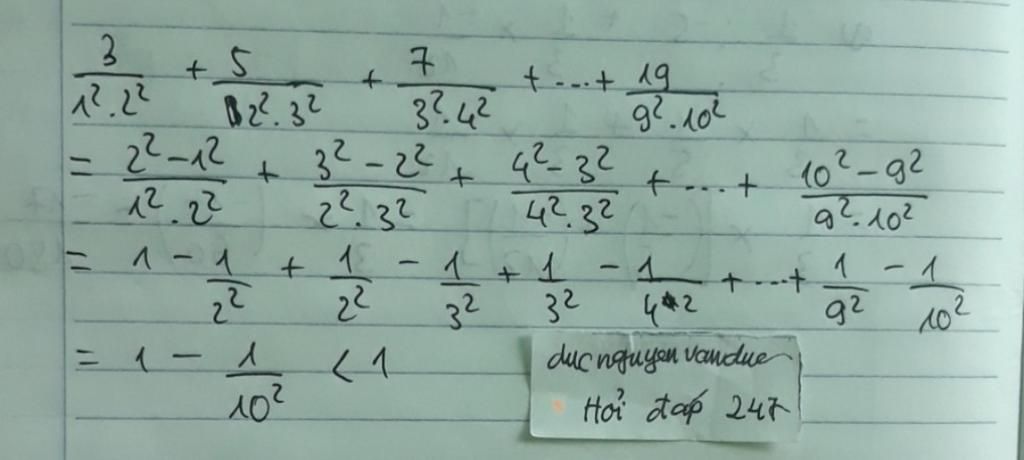 3/(1².2²) + 5/(2².3²) + 7/(3².4²) + ... + 19/(9².10²)
= (2²-1²)/(1².2²) + (3²-2²)/(2².3²) + (4²-3²)/(4².3²) + ... + (10²-9²)/(9².10²)
= 1 - 1/2² + 1/2² - 1/3² + 1/3² - 1/4² + ... + 1/9² - 1/10²
= 1 - 1/10² < 1
ducnguyenvanduc
Hỏi đáp 247